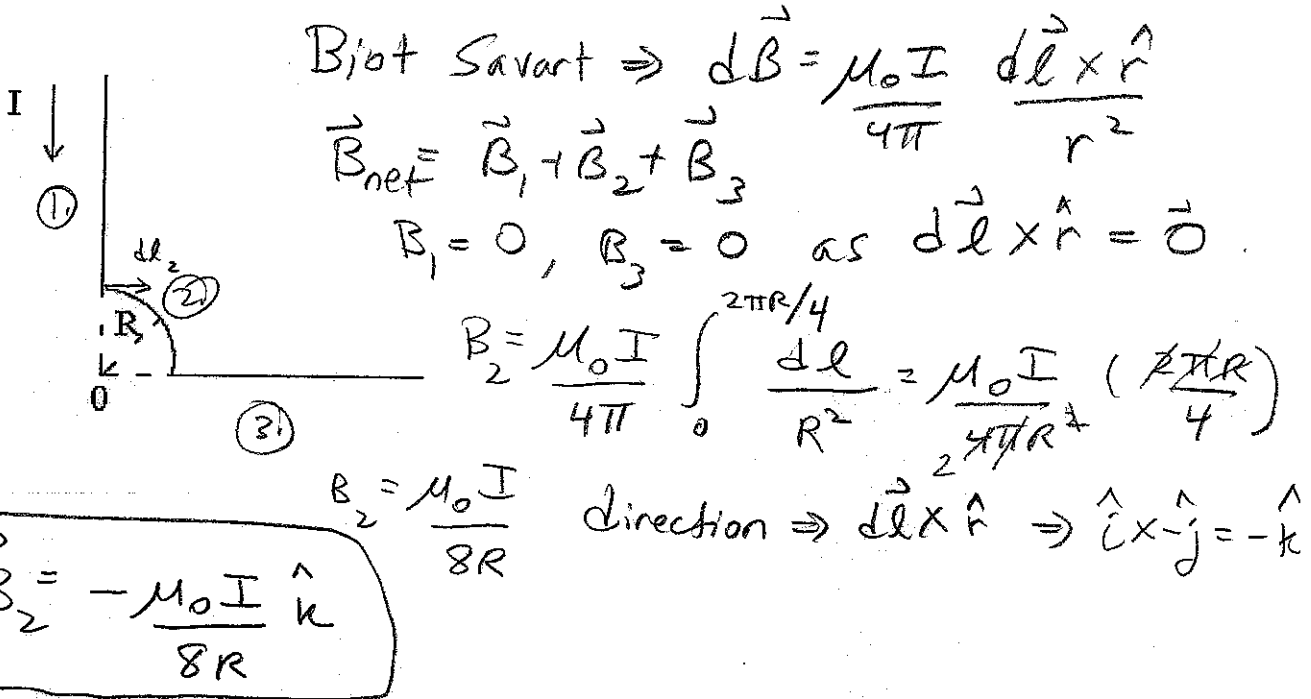 Biot Savart ⇒ dB⃗ = μ₀I/4π dl⃗ × r̂/r²
B⃗net = B⃗₁ + B⃗₂ + B⃗₃
B₁ = 0, B₃ = 0 as dl⃗ × r̂ = 0⃗.
I
①
dl₂
②
R
0
③
B₂ = μ₀I/4π ∫₀^(2πR/4) dl/R² = μ₀I/4πR² (2πR/4)
2
B₂ = μ₀I/8R direction ⇒ dl⃗ × r̂ ⇒ î × -ĵ = -k̂
B⃗₂ = -μ₀I/8R k̂